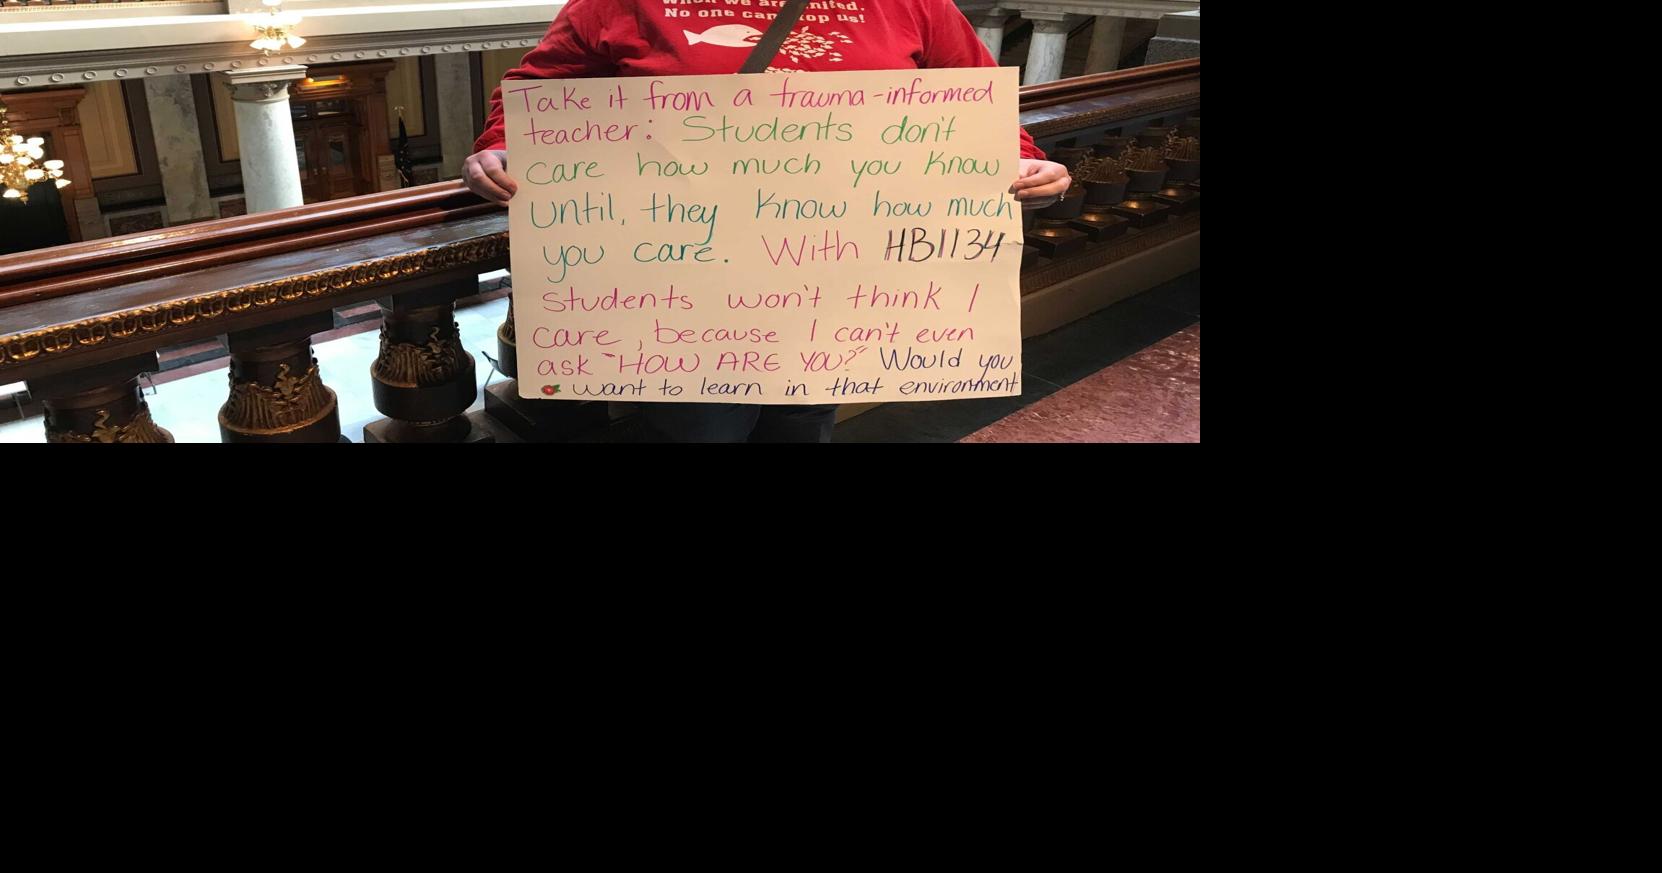 When we are united.
No one can stop us!
Take it from a trauma-informed
teacher: Students don't
care how much you know
until, they know how much
you care. With HB1134
students won't think I
care, because I can't even
ask "HOW ARE YOU?" Would you
want to learn in that environment